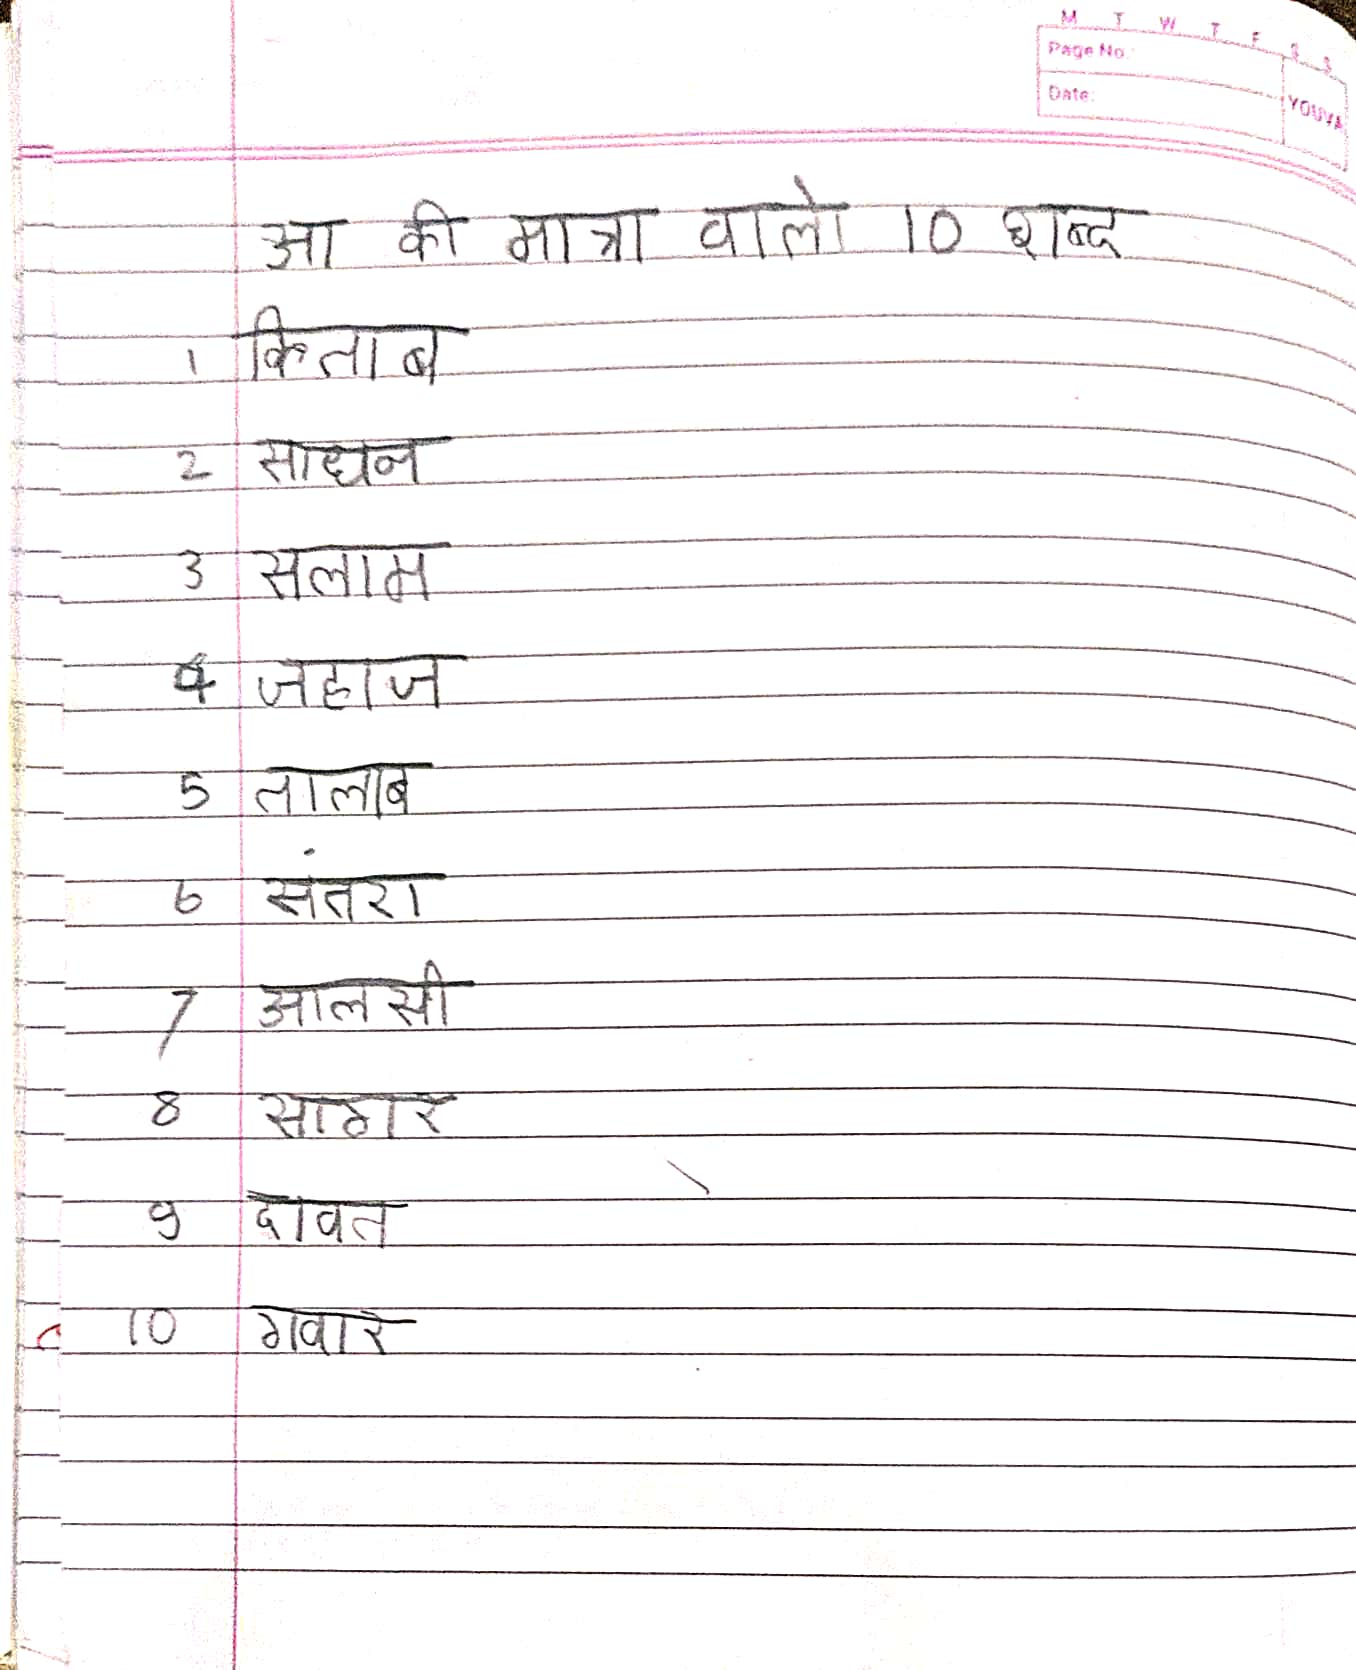 M T W T F S S
Page No.:
Date:
YOUVA
आ की मात्रा वालो 10 शब्द
1 किताब
2 साधन
3 सलाम
4 जहाज
5 तालाब
6 संतरा
7 आलसी
8 सागर
9 दावत
10 गवार